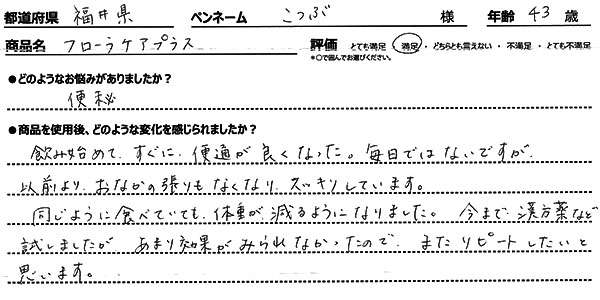 都道府県 福井県 ペンネーム こつぶ 様 年齢 43 歳
商品名 フローラケアプラス 評価 とても満足 ・ 満足 ・ どちらとも言えない ・ 不満足 ・ とても不満足
*○で囲んでお選びください。
●どのようなお悩みがありましたか?
便秘
●商品を使用後、どのような変化を感じられましたか?
飲み始めて、すぐに、便通が良くなった。毎日ではないですが、
以前より、おなかの張りもなくなり、スッキリしています。
同じように食べていても、体重が、減るようになりました。今まで、漢方薬など
試しましたが、あまり効果がみられなかったので、またリピートしたいと
思います。